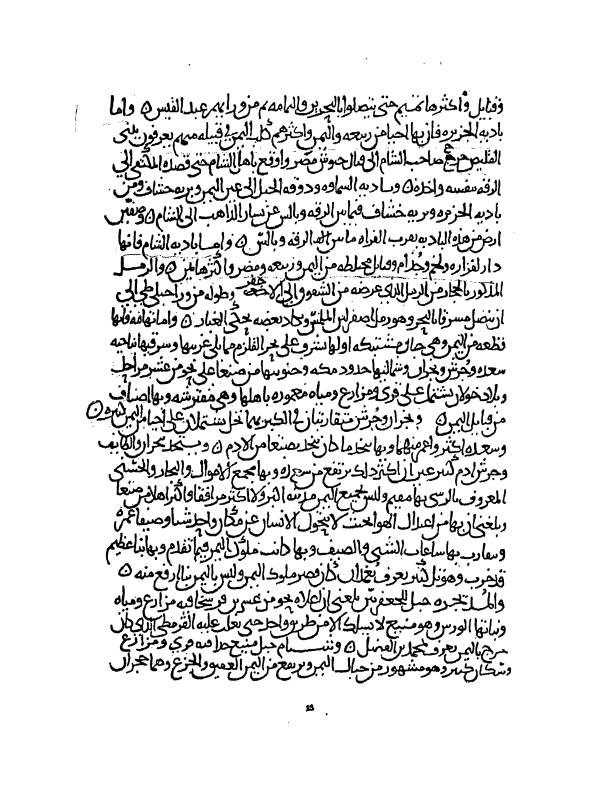 وقبايل واكثرها تميم حتى يتصلوا بالبحرين واليمامه ثم من ورايهم عبد القيس ٥ واما
باديه الجزيره فان بها احيا من ربيعه واليمن واكثرهم كلب اليمن وفي قبيله منهم يعرفون ببنى
العليص خرج صاحب الشام الذي فل جيوش مصر واوقع باهل الشام حتى قصده المكتفي الي
الرقه بنفسه واخذه ٥ وباديه السماوه ودومه الجندل الى عين التمر وبريه خساف ومن
باديه الجزيره وبريه خساف فيما بين الرقه وبالس عن يسار الذاهب الى الشام ٥ وصفين
ارض من هذه الباديه بقرب الفراه ما بين الرقه وبالس ٥ واما باديه الشام فانها
دار لفزاره ولخم وجذام وقبايل مختلطه من اليمن وربيعه ومضر واكثرها يمن ٥ والرمل
المذكور بالحجاز من الرمل الذي عرضه من الشقوق الى الاجفر وطوله من ورا جبلي طي الي
ان يتصل مشرقا بالبحر وهو رمل اصفر لين الملمس يكاد بعضه يحكى الغبار ٥ واما تهامه فانها
قطعه من اليمن وهي جبال مشتبكه اولها مشرف على بحر القلزم مما يلي غربيها وشرقيها ناحيه
صعده وجرش ونجران وشماليها حدود مكه وجنوبيها من صنعا على نحو من عشر مراحل
وبلاد خولان يشتمل على قرى ومزارع ومياه معموره باهلها وهي مفترشه وبها اصناف
من قبايل اليمن ٥ ونجران وجرش متقاربتان في الكبر بهما نخل يشتملان على احيا من اليمن كثيره ٥
وصعده اكثر واعمر منهما وبها يتخذ ما كان يتخذ بصنعا من الادم ٥ ويتخذ بنجران والطايف
وجرش ادم كثير غير ان اكثر ذلك يرتفع من صعده وبها مجمع الاموال والتجار والحسنى
المعروف بالرسى بها مقيم وليس بجميع اليمن مدينه اكبر ولا اكثر مرافقا واكثر اهلا من صنعا
وبلغنى ان بها من اعتدال الهوا بحيث لا يتحول الانسان عن مكان واحد شتا وصيفا عمره
ويتقارب بها ساعات الشتى والصيف وبها كانت ملوك اليمن فيما تقدم وبها بنا عظيم
قد خرب وهو تل كبير يعرف بغمدان كان قصر ملوك اليمن وليس باليمن بنا ارفع منه ٥
والمذيخره جبل للجعفرى بلغنى ان اعلاه نحو من عشرين فرسخا فيه مزارع ومياه
ونباتها الورس وهو منيع لا يسلك الا من طريق واحد حتى تغلب عليه القرمطى الذى كان
خرج باليمن يعرف بمحمد بن الفضل ٥ وشبام جبل منيع جدا فيه قرى ومزارع
وسكان كثيره وهو مشهور من جبال اليمن ويرتفع من اليمن العقيق والجزع وهما حجران